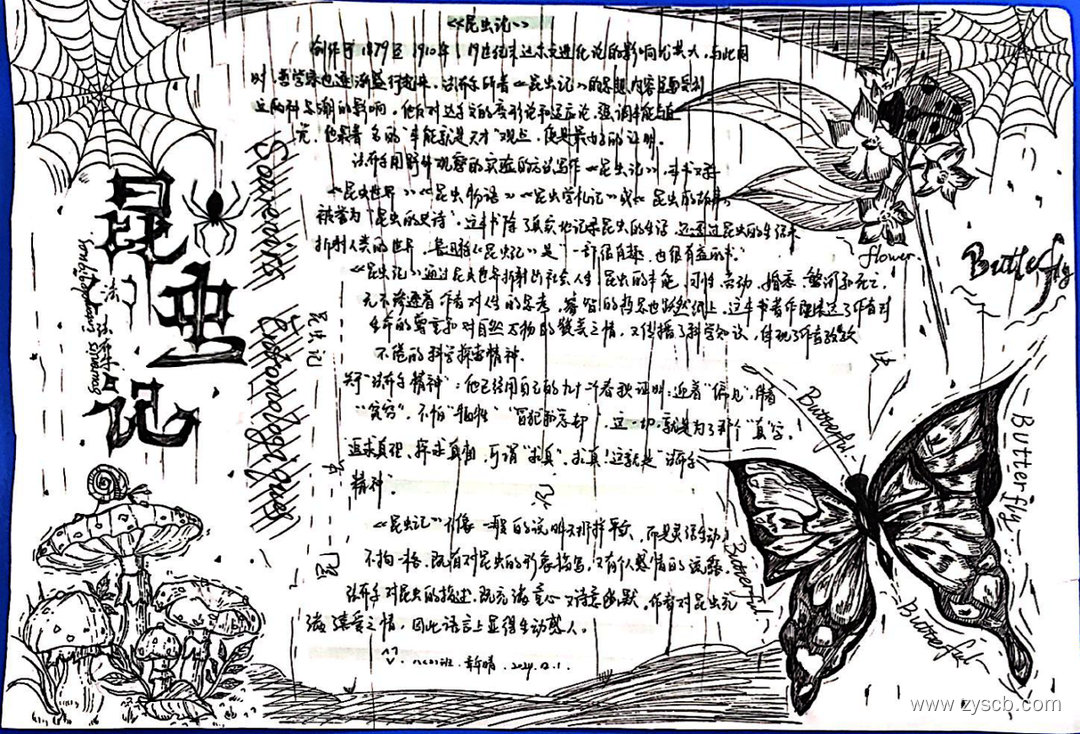 《昆虫记》
创作于1879至1910年,19世纪末达尔文进化论的影响尤其大,与此同
时,哲学家也逐渐盛行起来,法布尔所著《昆虫记》的主题内容自然受到
这两种思潮的影响。他反对达尔文的变形论和适应论,强调本能与直
觉,他最著名的“本能就是天才”观点,便是最好的证明。
法布尔用野外观察的实验的方法写作《昆虫记》,本书又译
《昆虫世界》《昆虫物语》《昆虫学札记》或《昆虫的故事》
被誉为“昆虫的史诗”,这本书除了真实地记录昆虫的生活,还透过昆虫的生活
折射人类的世界,鲁迅称《昆虫记》是“一部很有趣,也很有益的书”。
《昆虫记》通过昆虫世界折射出社会人生,昆虫的本能、习性、劳动、婚恋、繁衍和死亡,
无不渗透着作者对人性的思考,睿智的哲思也跃然纸上,这本书表达了作者对
生命的尊重和对自然万物的赞美之情,又传播了科学知识,体现了作者孜孜
不倦的科学探索精神。
关于“法布尔精神”:他已经用自己的九十个春秋证明:迎着“偏见”,伴着
“贫穷”,不怕“牺牲”“冒犯和忘却”,这一切,就是为了那个“真”字。
追求真理、探求真相,可谓“求真”。求真!这就是“法布尔
精神”。
《昆虫记》不像一般的说明文那样平实,而是灵活生动,
不拘一格,既有对昆虫的形容描写,又有个人感情的流露,
法布尔对昆虫的描述,既充满童心又诗意幽默,饱有对昆虫充
满深爱之情,因此语言上显得生动感人。
2024.12.1.
昆虫记
Souvenirs Entomologiques
昆虫记
法布尔
flower.
Butterfly
Butterful
Butterfly
Butterful
Butterful
www.zyscb.com